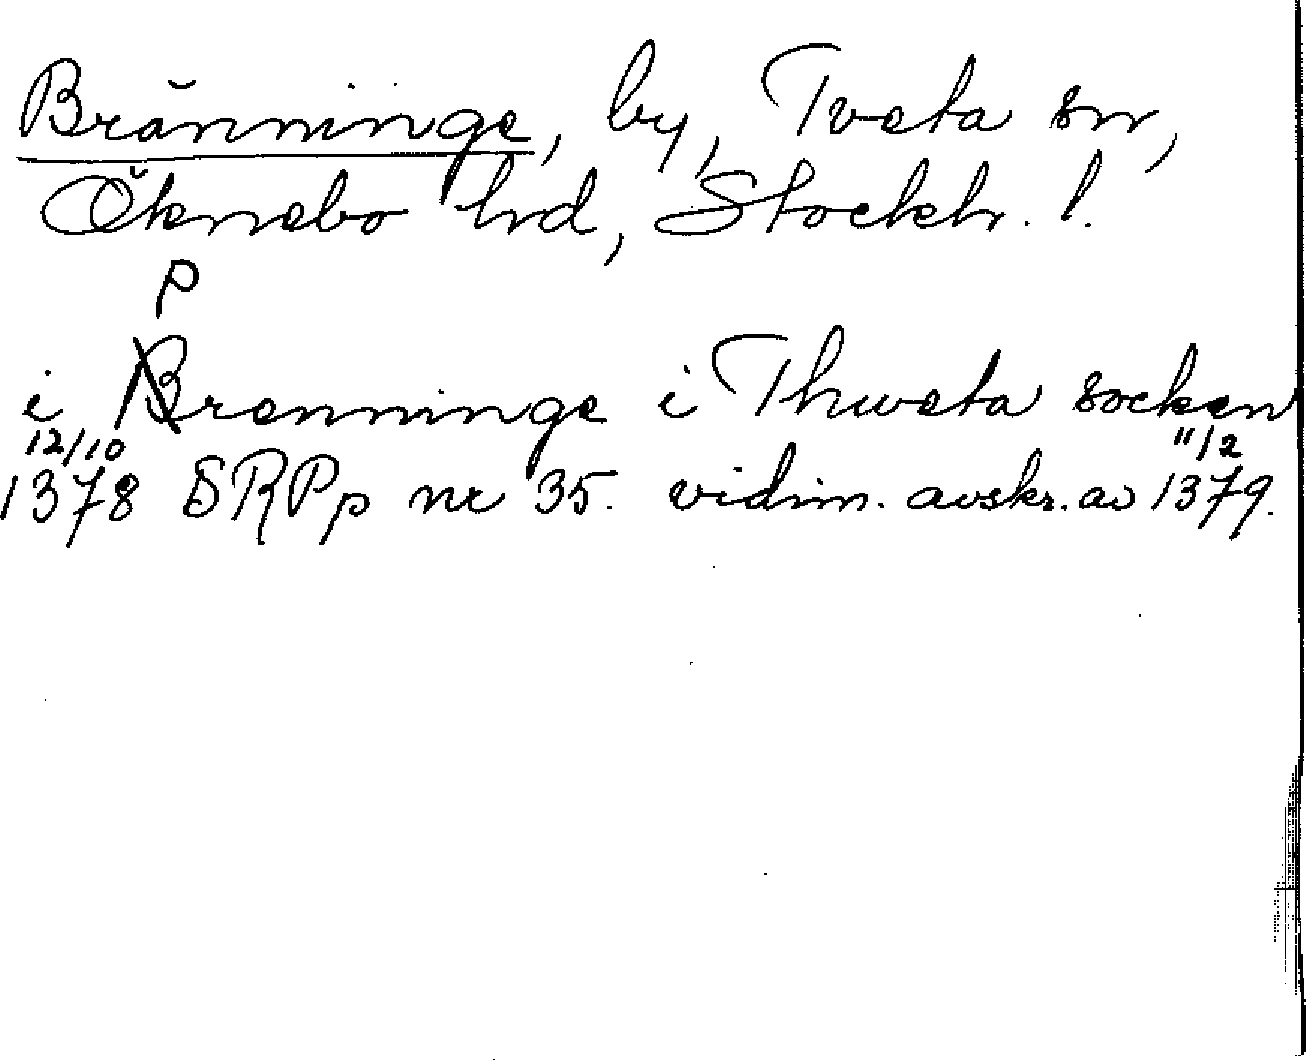 Bränninge, by, Tveta sn,
Öknebo hrd, Stockh. l.
P
i Brenninge i Thweta socken
12/10 11/2
1378 SRPp nr 35. vidim. avskr. av 1379.